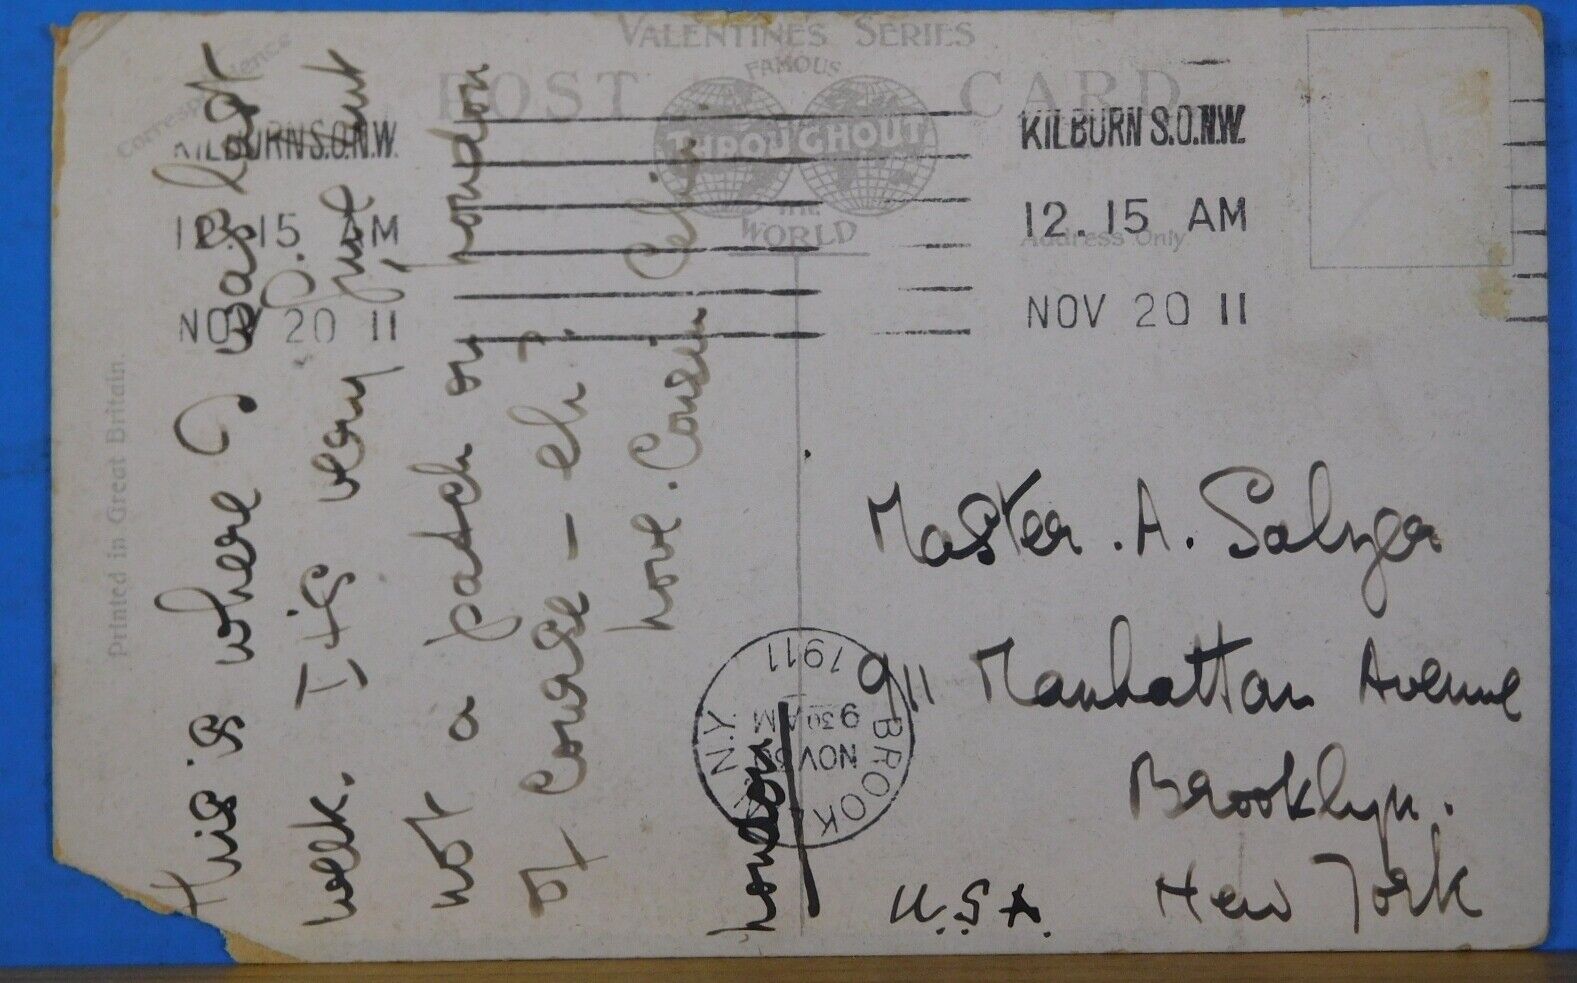 VALENTINE'S SERIES
FAMOUS
POST CARD
THROUGHOUT
THE
WORLD
Correspondence
Address Only
Printed in Great Britain.
KILBURN S.O.N.W.
12.15 AM
NOV 20 11
KILBURN S.O.N.W.
12.15 AM
NOV 20 11
This is where I was last
week. It is very but
not a patch on London
of course - eh?
love. Cousin
London
BROOKLYN N.Y.
NOV
930 AM
1911
Master. A. Salzer
911 Manhattan Avenue
Brooklyn.
New York
U.S.A.